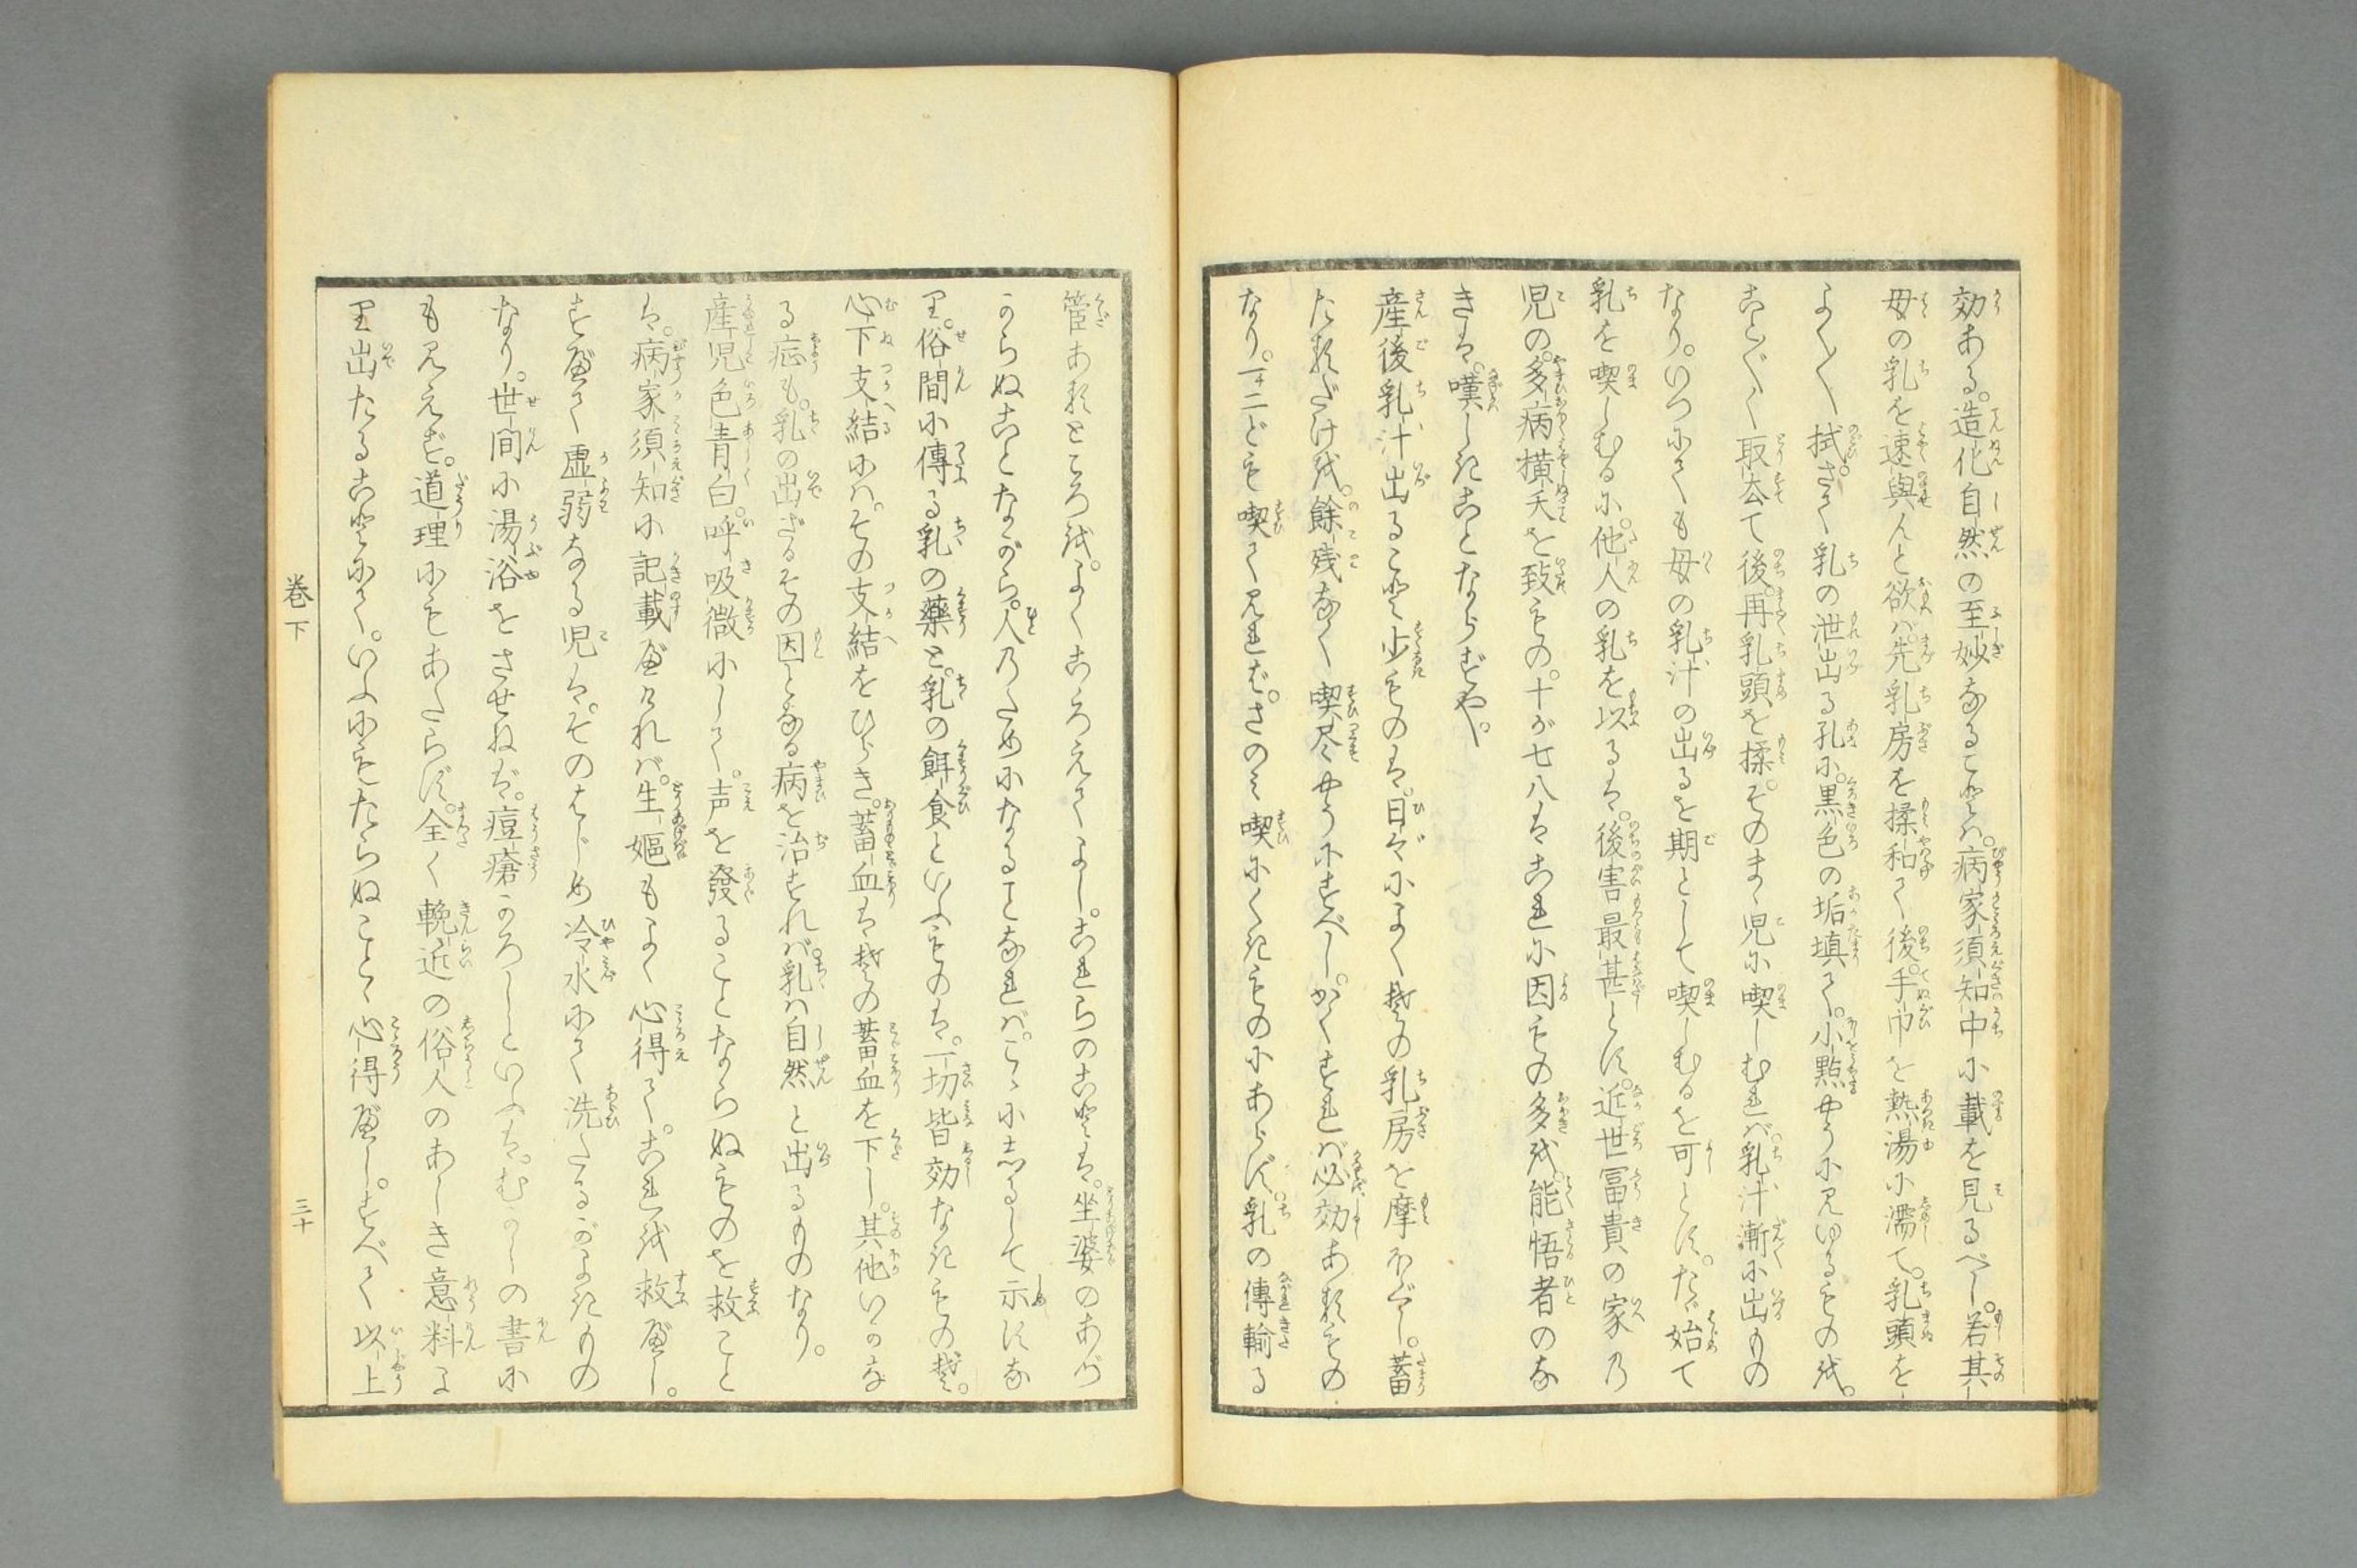 効ある。造化自然の至妙なることハ。病家須知中に載を見るべし。若其
母の乳を速與んと欲バ。先乳房を揉和て後。手巾を熱湯に濡て。乳頭を
よく〳〵拭さて乳の泄出る孔に。黒色の垢填て。小點やうに見ゆるものを。
こと〴〵く取去て後。再乳頭を揉。そのまゝ児に喫しむれバ。乳汁漸に出もの
なり。いつにても母の乳汁の出るを期として喫しむるを可とす。たゞ始て
乳を喫しむるに。他人の乳を以るハ。後害最甚とす。近世冨貴の家乃
児の。多病横夭を致もの。十が七八ハこれに因もの多を。能悟者のな
きハ。嘆しきことならずや。
産後乳汁出ること少ものハ。日々によく其の乳房を摩ほぐし。蓄
たるだけを。餘残なく喫尽やうにすべし。かくすれバ必効あるもの
なり。一二ども喫て見れば。さのミ喫にくきものにあらず。乳の傳輸る
管あるところを。よくこゝろえてよし。これらのことハ。坐婆のあづ
からぬことながら。人乃ためになることなれバ。こゝに志るして示すな
り。俗間に傳る乳の藥と。乳の餌食といふものハ。一切皆効なきもの歟。
心下支結にハ。その支結をひらき。蓄血ハ其の蓄血を下し。其他いかな
る症も。乳の出ざるその因となる病を治すれバ。乳ハ自然と出るものなり。
産児色青白。呼吸微にして。声を發ることならぬものを救こと
ハ。病家須知に記載たれバ。生嫗もよく心得て。これを救べし。
すべて虚弱なる児ハ。そのはじめ冷水にて洗たるがよきもの
なり。世間に湯浴をさせねば。痘瘡かろしといふハ。むかしの書に
も見えず。道理にもあたらず。全く輓近の俗人のあしき意料よ
り出たることにて。いふにもたらぬことゝ心得べし。すべて以上
巻下
三十